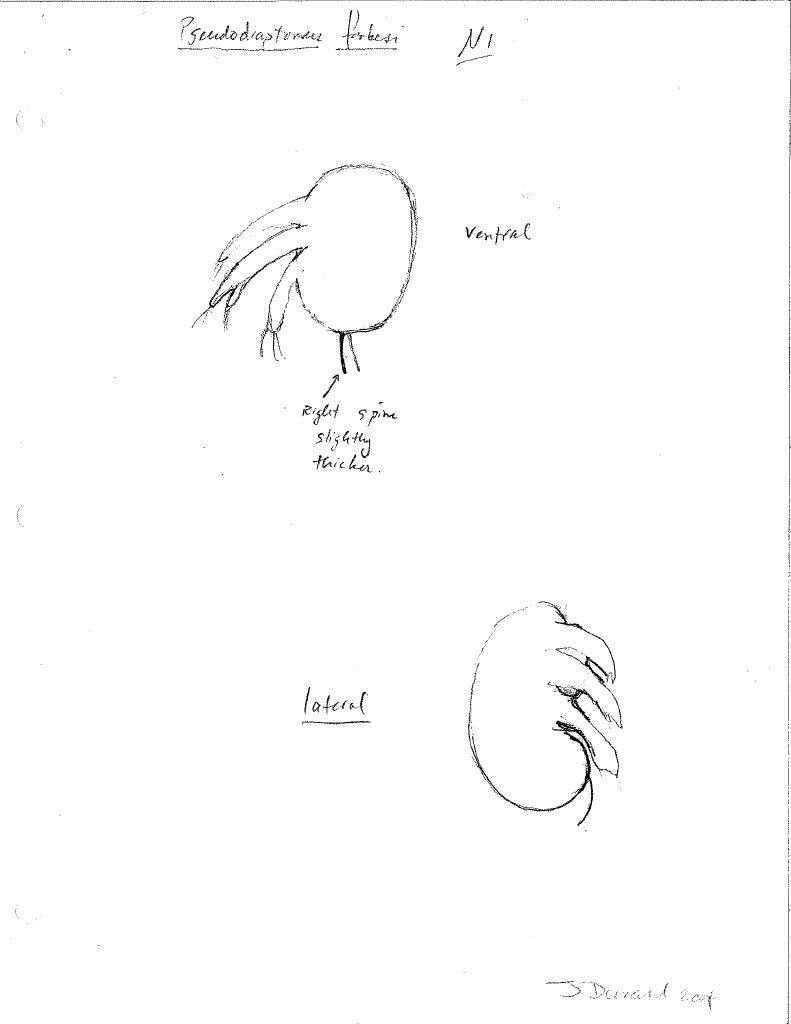 Pseudodiaptomus forbesi N1
ventral
Right spine
slightly
thicker.
lateral
J Durand 2004